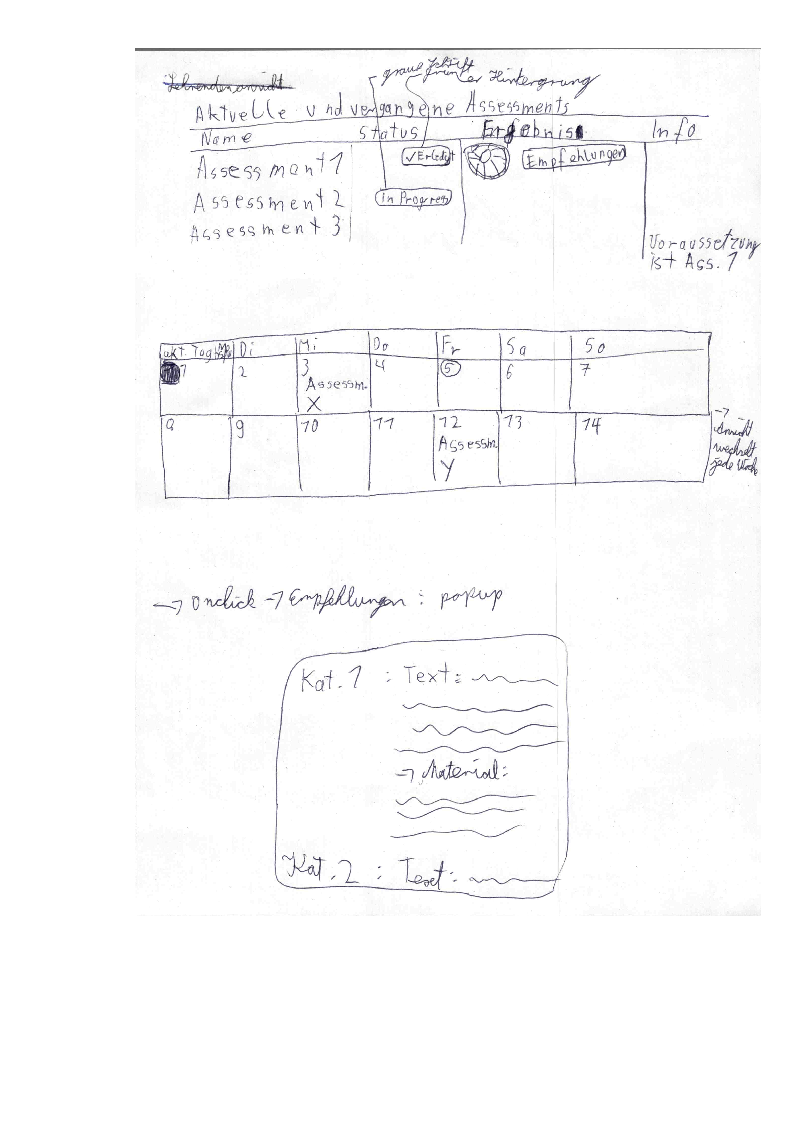 graue Schrift
grüner Hintergrung
Lehrendenansicht
Aktuelle und vergangene Assessments
Name Status Ergebnis Info
Assessmant 1 ✓ Erledigt Empfehlungen
Assessment 2 in Progress
Assessment 3
Voraussetzung
ist Ass. 1
akt. Tag Mo Di Mi Do Fr Sa So
1 2 3 4 5 6 7
Assessm.
X
9 10 11 12 13 14
Assessm
Y
→ Ansicht
wechselt
jede Woche
→ Onclick → Empfehlungen : popup
Kat. 1 : Text:
→ Material:
Kat. 2 : Text: